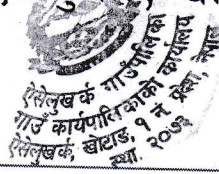 ऐसेलुखर्क गाउँपालिका
गाउँ कार्यपालिकाको कार्यालय
ऐसेलुखर्क, खोटाङ, १ नं. प्रदेश, नेपाल
स्था. २०७३